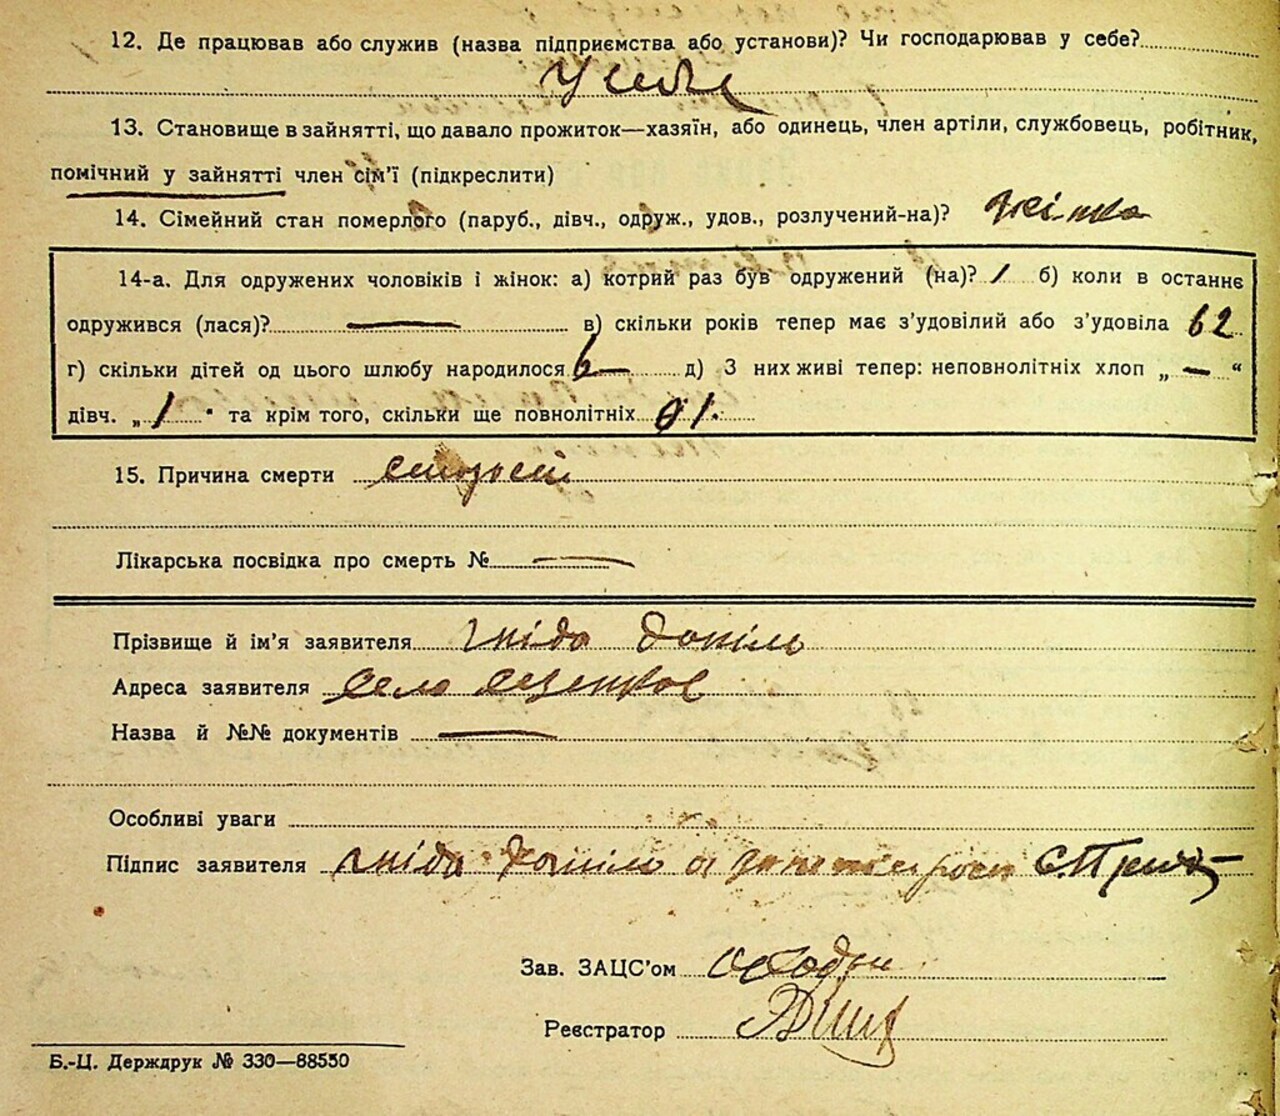 12. Де працював або служив (назва підприємства або установи)? Чи господарював у себе?
У себе
13. Становище в зайнятті, що давало прожиток—хазяїн, або одинець, член артіли, службовець, робітник,
помічний у зайнятті член сім'ї (підкреслити)
14. Сімейний стан померлого (паруб., дівч., одруж., удов., розлучений-на)? жінка
14-а. Для одружених чоловіків і жінок: а) котрий раз був одружений (на)? 1 б) коли в останнє
одружився (лася)? — в) скільки років тепер має з'удовілий або з'удовіла 62
г) скільки дітей од цього шлюбу народилося 6 — д) З них живі тепер: неповнолітніх хлоп „ — “
дівч. „ 1 “ та крім того, скільки ще повнолітніх 1.
15. Причина смерти старость
Лікарська посвідка про смерть № —
Прізвище й ім'я заявителя Гніда Даніль
Адреса заявителя село
Назва й №№ документів —
Особливі уваги
Підпис заявителя Гніда Даніло
Зав. ЗАЦС'ом
Реєстратор
Б.-Ц. Держдрук № 330—88550